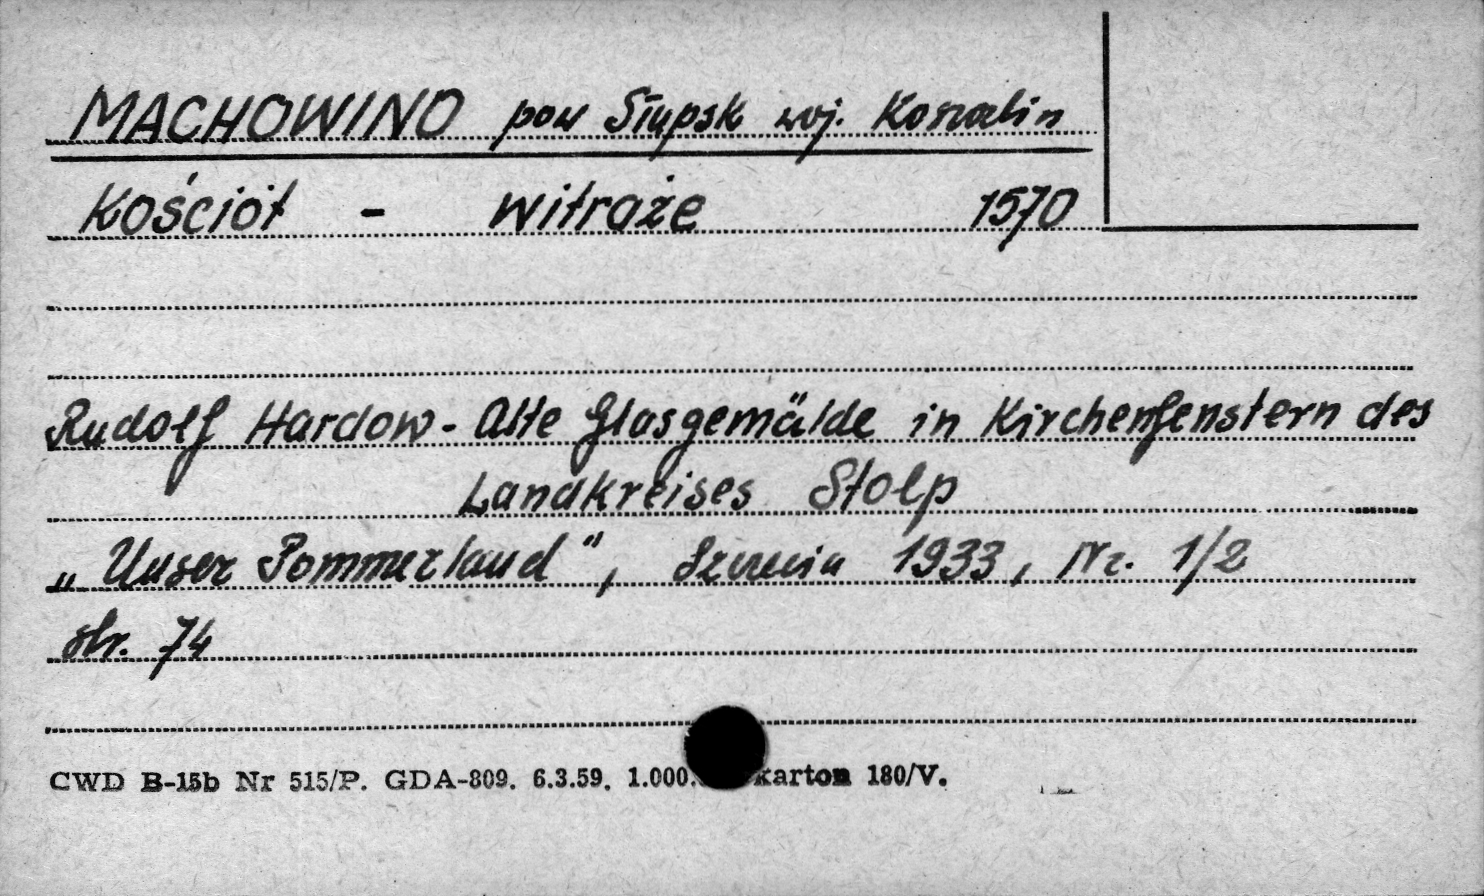 MACHOWINO pow Słupsk woj. Koszalin
Kościół - witraże 1570
Rudolf Hardow - Alte Glasgemälde in Kirchenfenstern des
Landkreises Stolp
„Unser Pommerland", Szczecin 1933, Nr. 1/2
str. 74
CWD B-15b Nr 515/P. GDA-809. 6.3.59. 1.000. karton 180/V.